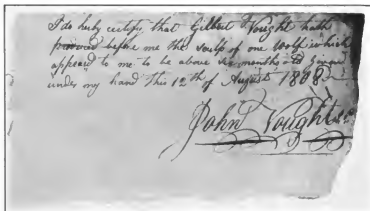 I do herby certify that Gilbert Vought hath
produced before me the scalp of one Wolf which
appeard to me to be above six months old Given
under my hand this 12th of August 1808
John Vought